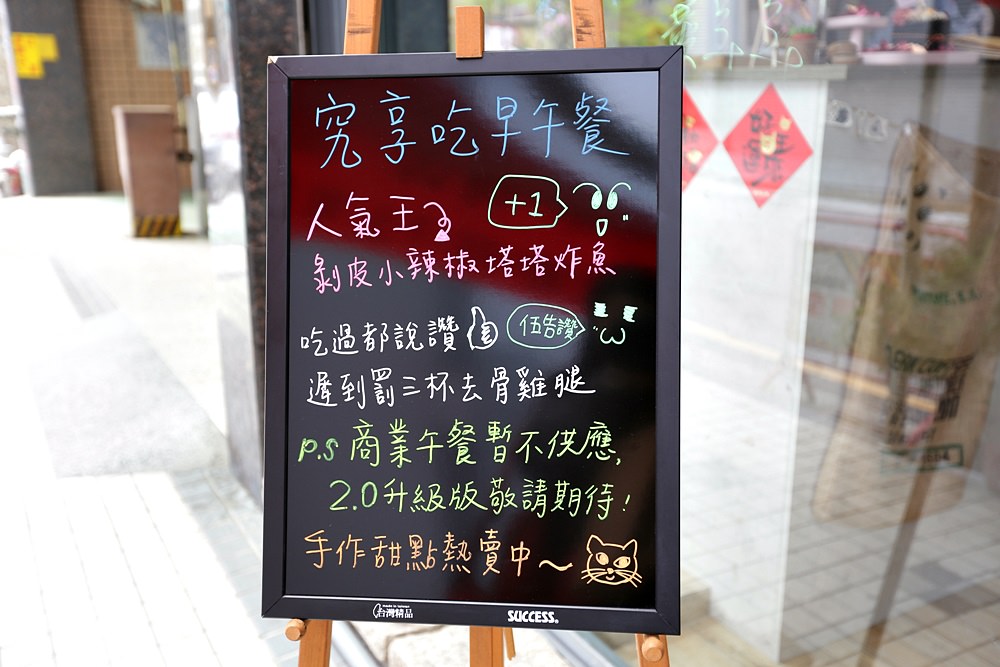 究享吃早午餐
人氣王
+1
剝皮小辣椒塔塔炸魚
吃過都說讚
伍告讚
遲到罰三杯去骨雞腿
p.s 商業午餐暫不供應,
2.0升級版敬請期待!
手作甜點熱賣中~
台灣精品
SUCCESS®